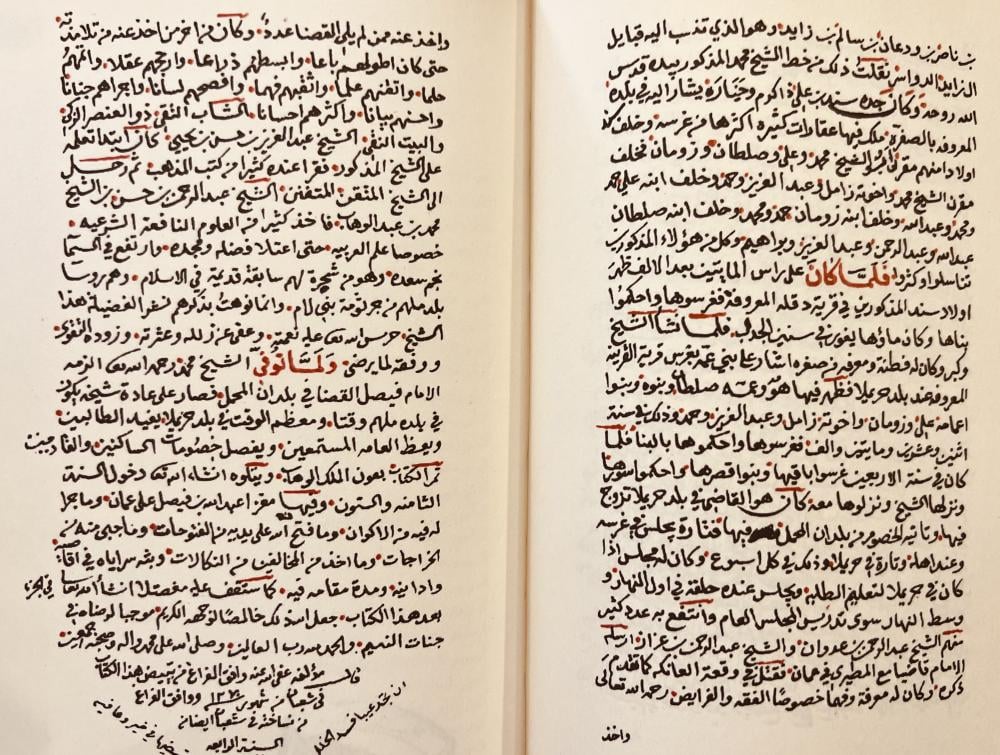 بن ناصر بن ودعان بن سالم بن زايد وهو الذي تنسب اليه قبايل
الزايد الدواسر نقلت ذلك من خط الشيخ محمد المذكور بيده قدس
الله روحه وكان جده سند بن علي ذا كوم وخيارة يشار اليه في بلده
المعروفه بالصفره ملك فيها عقارات كثيره اكثرها من غرسه وخلف
اولادا منهم مقرن ابو الشيخ محمد وعلي وصلطان وزومان فخلف
مقرن الشيخ محمد واخوته زامل وعبد العزيز وحمد وخلف ابنه علي حمد
ومحمد وعبدالله وخلف ابنه زومان حمد ومحمد وخلف ابنه صلطان
عبدالله وعبدالرحمن وعبد العزيز وبراهيم وكل من هؤلاء المذكورين
تناسلوا وكثروا فلما كان على راس المايتين بعد الالف ظهر
اولاد سند المذكورين في قرية دقله المعروفة فغرسوها واحكموا
بناها وكان ماؤها يغور في سنين الجدب فلما نشا الشيخ
وكبر وكان له فطنة ومعرفه من صغره اشار على بني عمه بغرس قرية القرينه
المعروفه عند بلد حريملا فظهر فيها هو وعمه صلطان وبنوه وبنوا
اعمامه علي وزومان واخوته زامل وعبد العزيز وحمد وذلك في سنة
اثنين وعشرين ومايتين والف فغرسوها واحكموها بالبنا فلما
كان في سنة الاربعين غرسوا باقيها وبنوا قصرها واحكموا سورها
ونزلها الشيخ ونزلوها معه كان هو القاضي في بلد حريملا تزوج
فيها وتاتيه الخصوم من بلدان المحمل فيها فتارة يجلس في غرسه
وعند اهله وتارة في حريملا وذلك في كل اسبوع وكان له مجلس اذا
كان في حريملا لتعليم الطلبه ويجلس عنده حلقة في اول النهار و
وسط النهار سوى تدريس المجلس العام وانتفع به عدد كثير
منهم الشيخ عبدالرحمن بن عدوان والشيخ عبدالرحمن بن عزاز ارسله
الامام قاضيا مع المطيري في عمان فقتل في وقعة العانكه كما تقدم
ذكره وكان له معرفة وفهما خصوصا الفقه والفرايض رحمه الله تعالى
واخذ
واخذ عنه ممن لم يلي القضا عدة وكان من اخر من اخذ عنه من تلامذته
حتى كان اطولهم باعا وابسطهم ذراعا وارجحهم عقلا واتمهم
حلما واتقنهم علما واثقبهم فهما وافصحهم لسانا واجراهم جنانا
واحسنهم بيانا واكثرهم احسانا الشاب التقي ذو العنصر الزكي
والبيت النقي الشيخ عبد العزيز بن حسن بن يحيى كان ابتدا تعلمه
على الشيخ المذكور فقرا عنده كثيرا من كتب المذهب ثم رحل
الى الشيخ المتقن المتفنن الشيخ عبد الرحمن بن حسن بن الشيخ
محمد بن عبد الوهاب فاخذ كثيرا من العلوم النافعة الشرعيه
خصوصا علم العربيه حتى اعتلا فضله ومجده وارتفع في السما
نجم سعده وهو من شجرة لهم سابقة قديمة في الاسلام وهم روسا
بلد ملهم من جرثومة بني لام وانما نوهت بذكرهم نشرا لفضيلة هذا
الشيخ حرس الله عليه نعمته وعفى عن زلله وعثرته وزوده التقوى
ووفقه لما يرضى ولما توفى الشيخ محمد رحمه الله تعالى الزمه
الامام فيصل القضا في بلدان المحمل فصار على عادة شيخه يكون
في بلده ملهم وقتا ومعظم الوقت في بلد حريملا يفيد الطالبين
ويعظ العامه المستمعين ويفصل خصومات الساكنين والقادمين
تم الكتاب بعون الملك الوهاب ويتلوه انشاء الله تعالى دخول السنة
الثامنه والستون وفيها مغزا عبد الله بن فيصل على عمان وما جرا
له فيه من الاكوان وما فتح الله على يديه من الفتوحات وما جبي منه من
الخراجات وما اخذ من المخالفين من النكالات وبثه سراياه في اقاصيه
وادانيه ومدة مقامه فيه كما ستقف عليه مفصلا انشا الله تعالى في الجزء
بعد هذا الكتاب جعل الله ذلك خالصا لوجهه الكريم موجبا لرضاه في
جنات النعيم والحمد لله رب العالمين وصلى الله على محمد واله وصحبه اجمعين
قال مؤلفه عفى الله عنه وافق الفراغ من تبييض هذا الكتاب
في شعبان من شهور سنة ١٢٧٠ ووافق الفراغ
من نساخته في شعبان ايضا من
السنة الرابعه